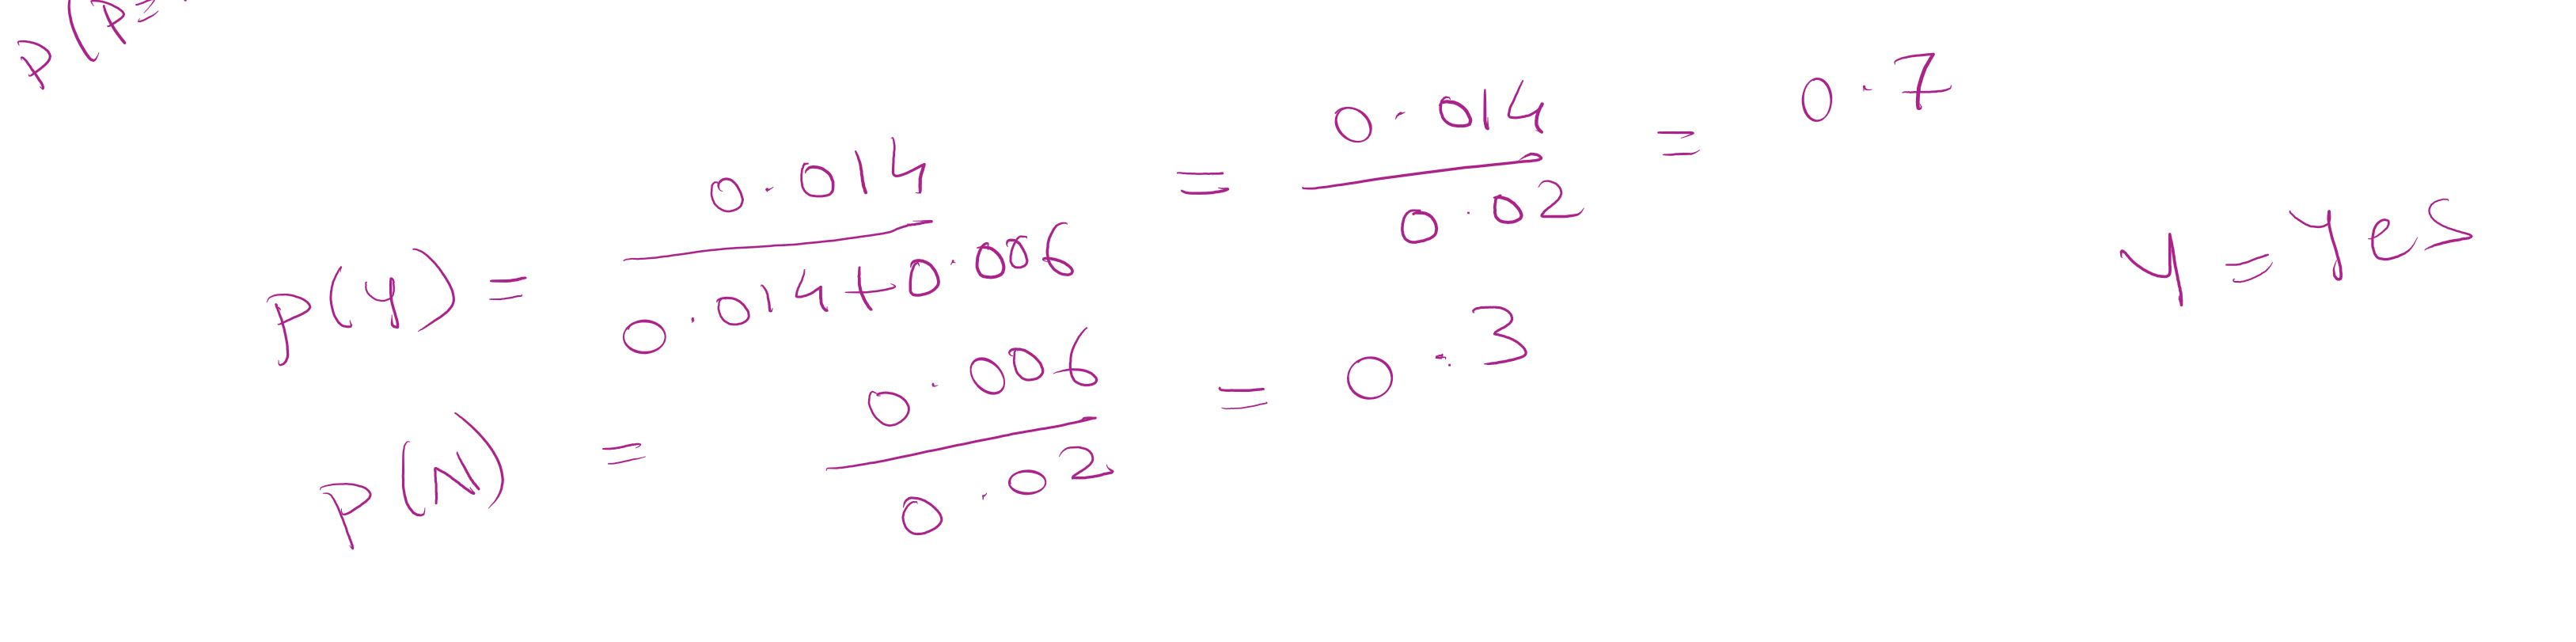 P(P=
P(Y) = 0.014 / 0.014+0.006 = 0.014 / 0.02 = 0.7
Y = Yes
P(N) = 0.006 / 0.02 = 0.3